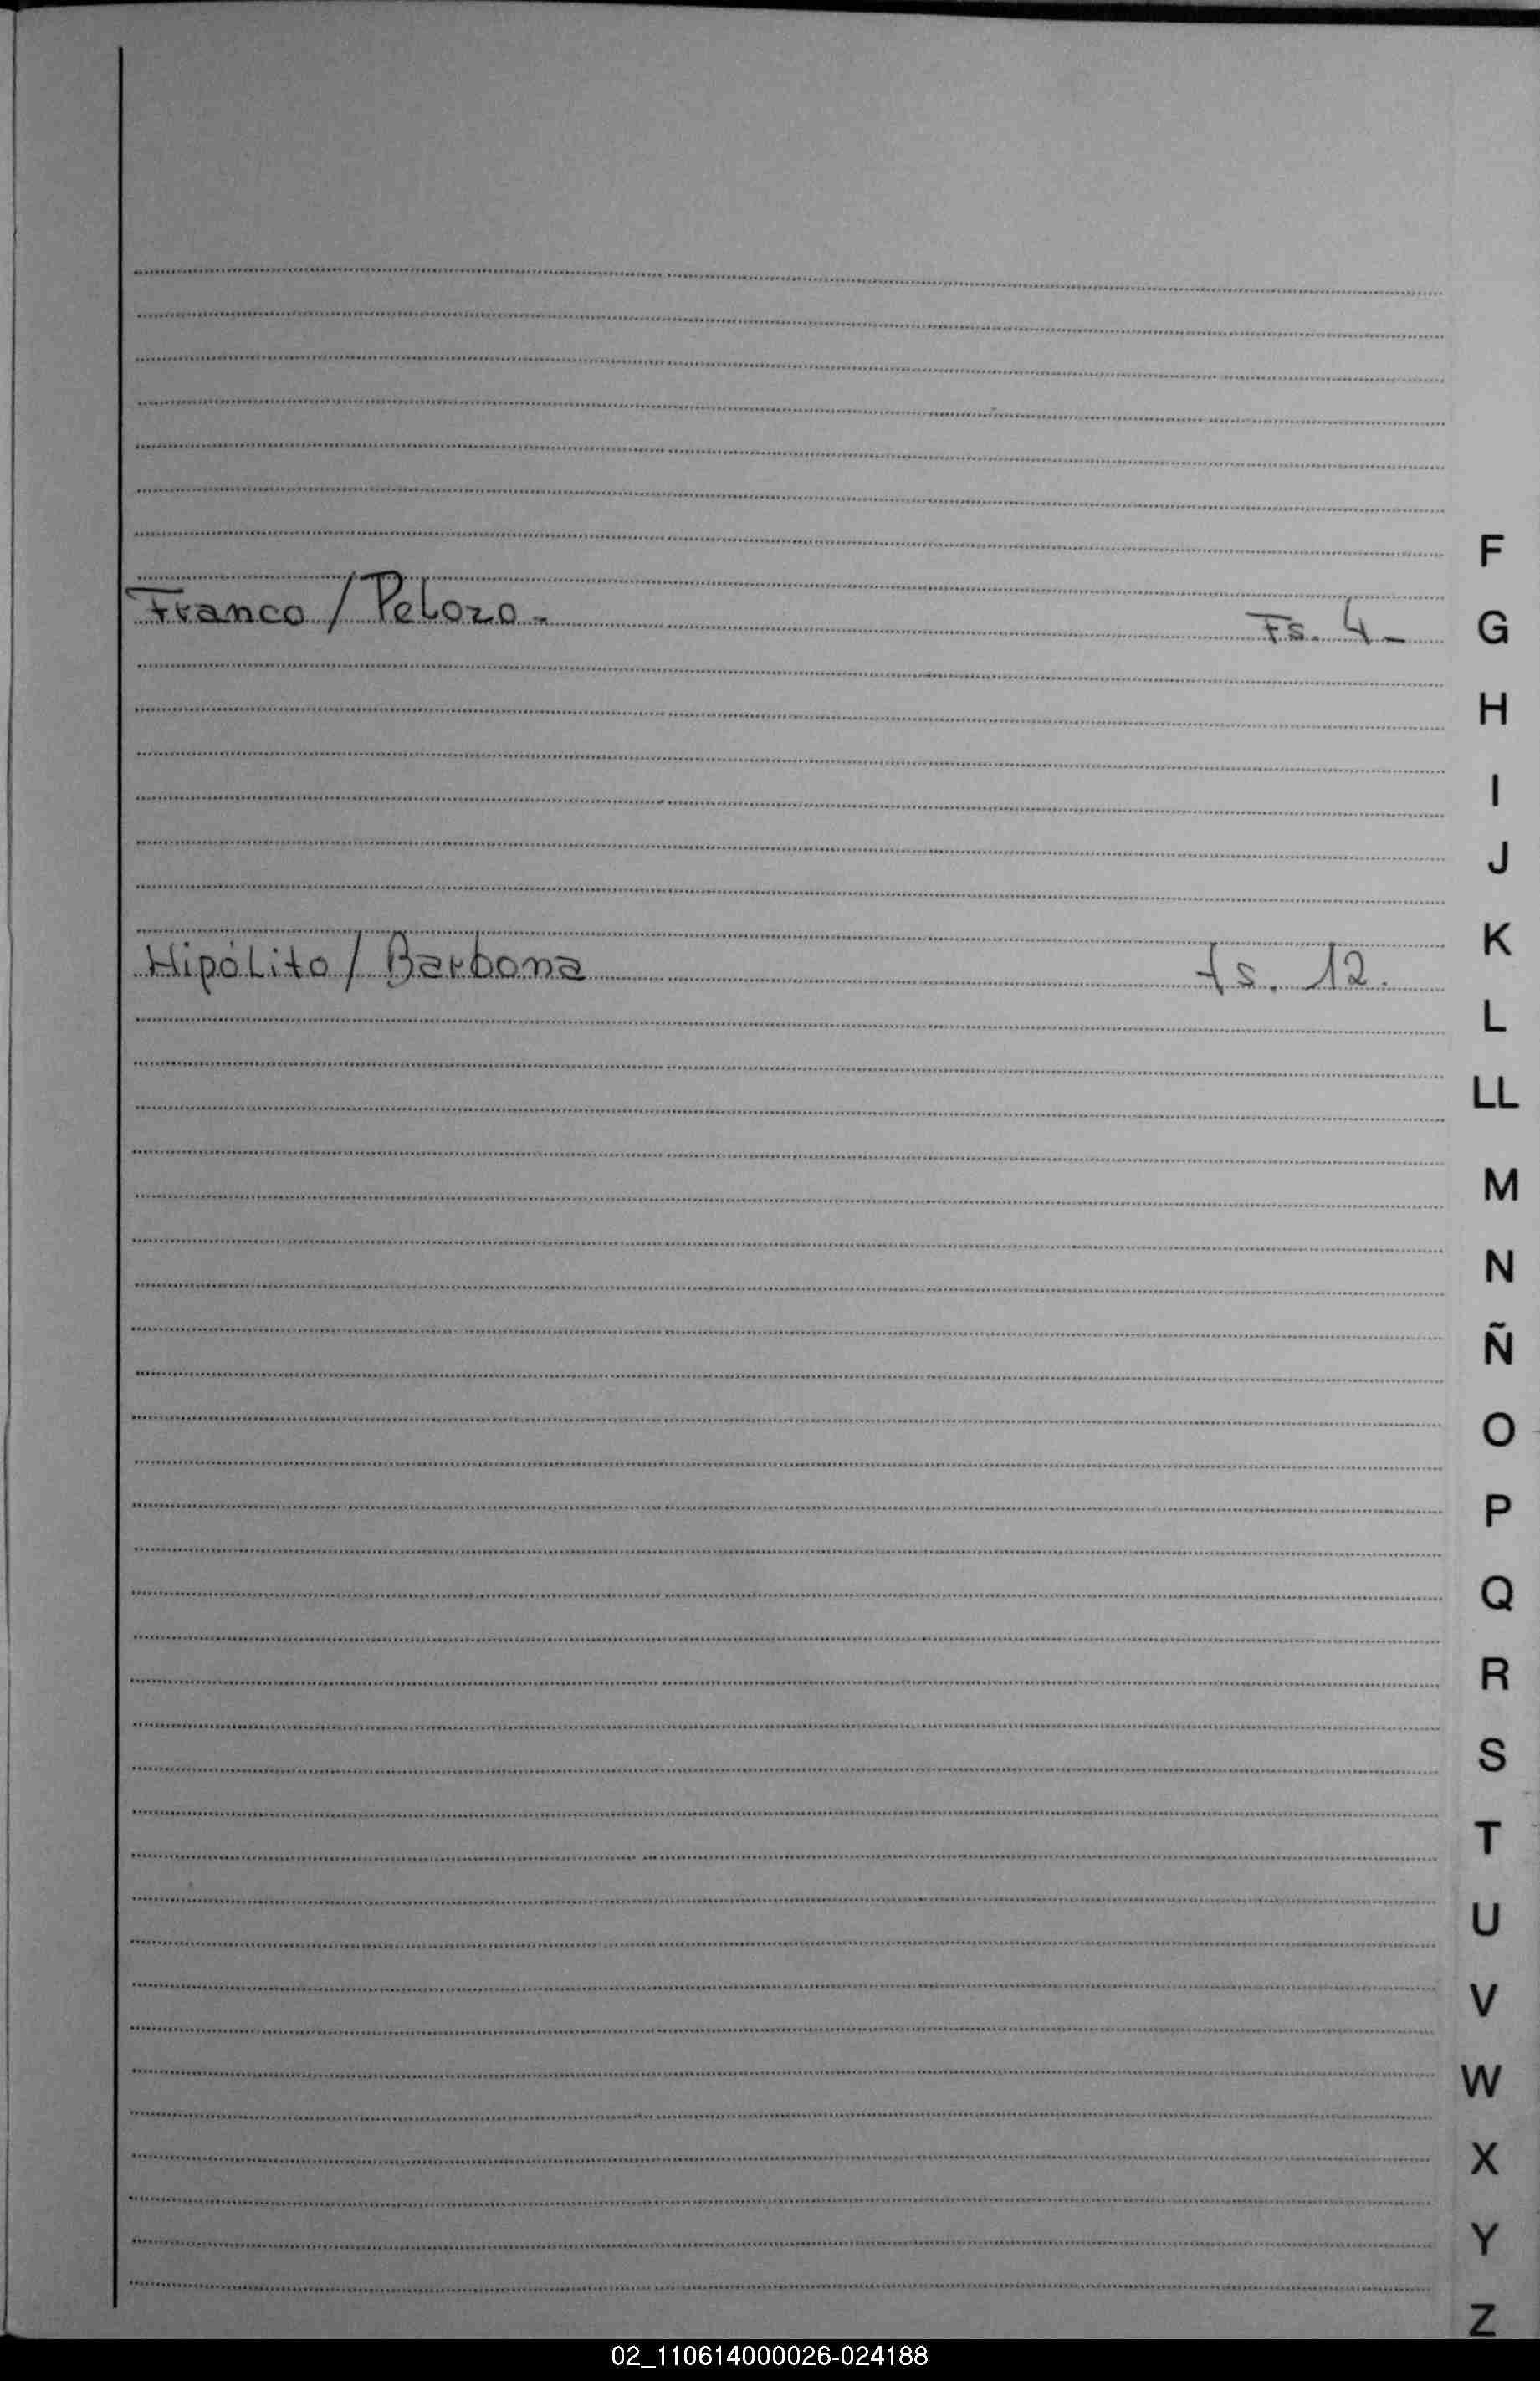 Franco / Pelozo - Fs. 4 -
Hipólito / Barbona fs. 12.
F
G
H
I
J
K
L
LL
M
N
Ñ
O
P
Q
R
S
T
U
V
W
X
Y
Z
02_110614000026-024188